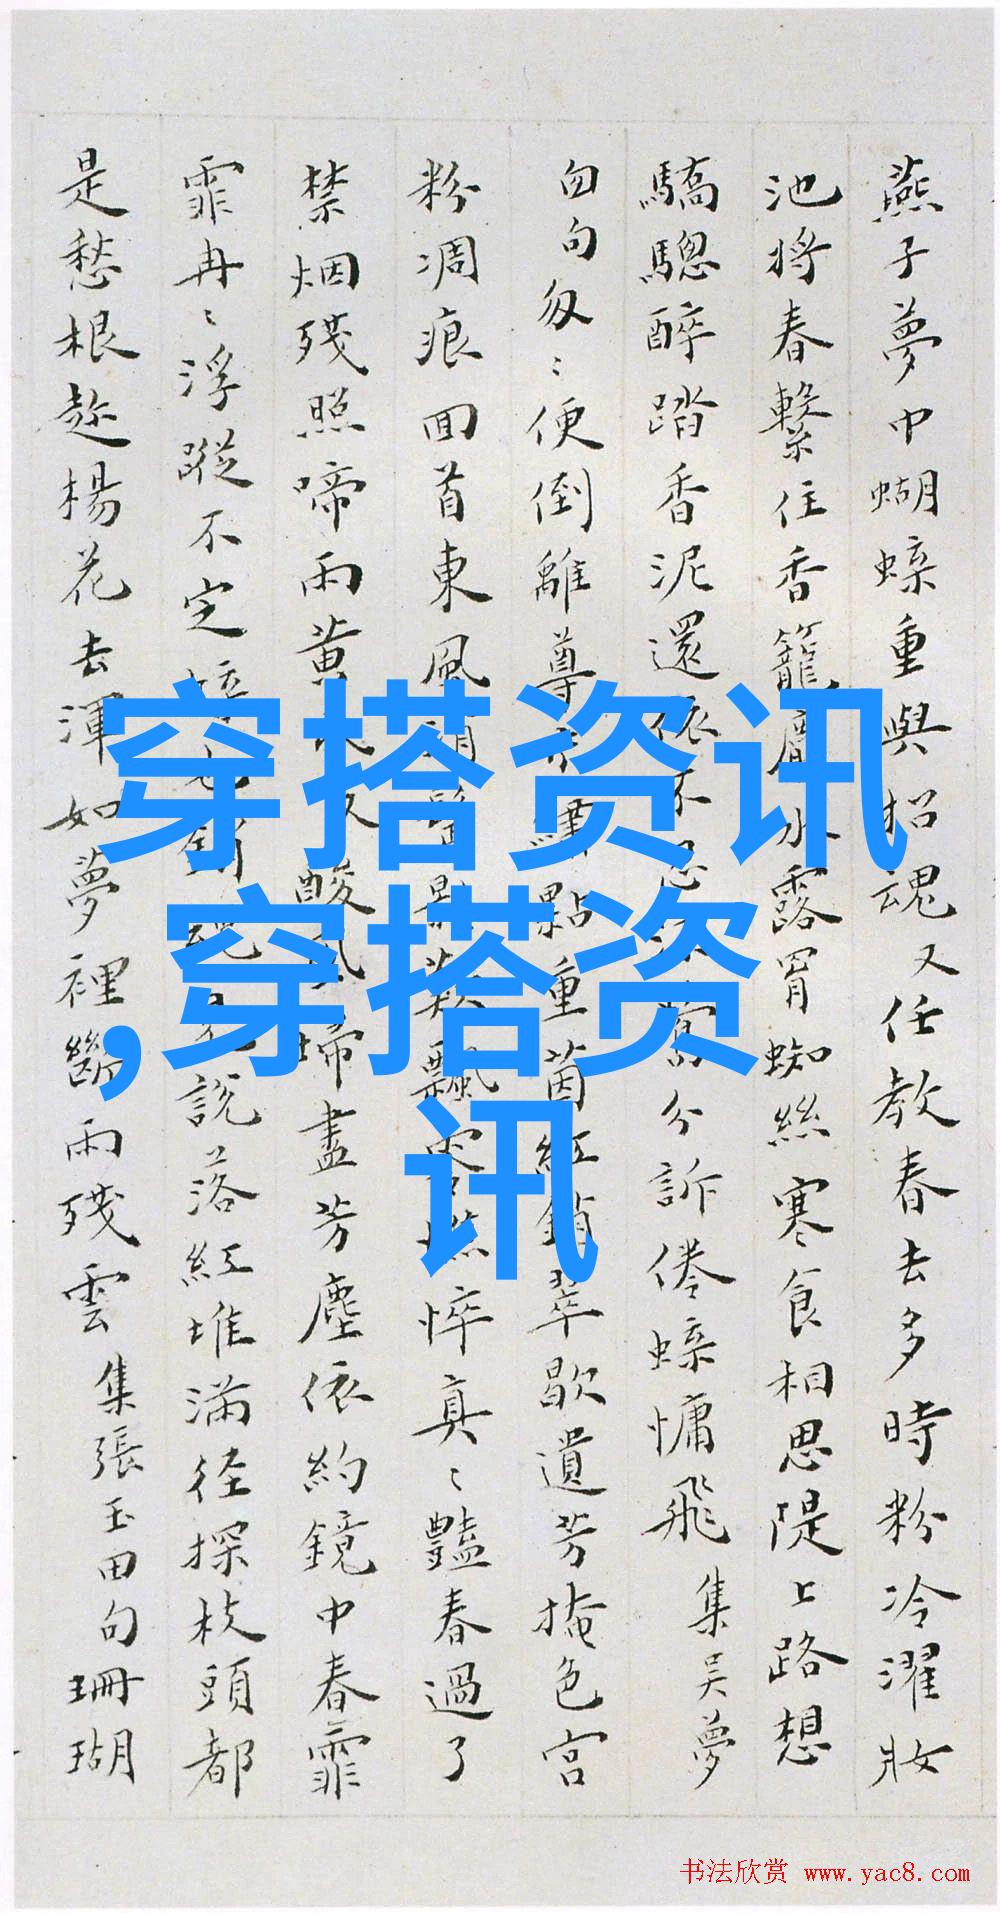 燕子夢中蝴蝶重與招魂又任教春去多時粉冷濯妝
池將春繫住香籠麝水露冐蜘絲寒食相思隄上路想
驕驄醉踏香泥還依不分訴倦蝶慵飛 集吴夢
句匆〻便倒離尊點重茵紅銷翠歇遺芳掩色宫
粉凋痕回首東風飄零憔悴真〻豔春過了
禁烟殘照啼雨黄昏又酸風掃盡芳塵依約鏡中春霏
霏冉〻浮蹤不定說落紅堆滿徑探枝頭都
是愁根趁楊花去渾如夢裡斷雨殘雲 集張玉田句珊瑚
穿搭资讯
,穿搭资
讯
书法欣赏 www.yac8.com